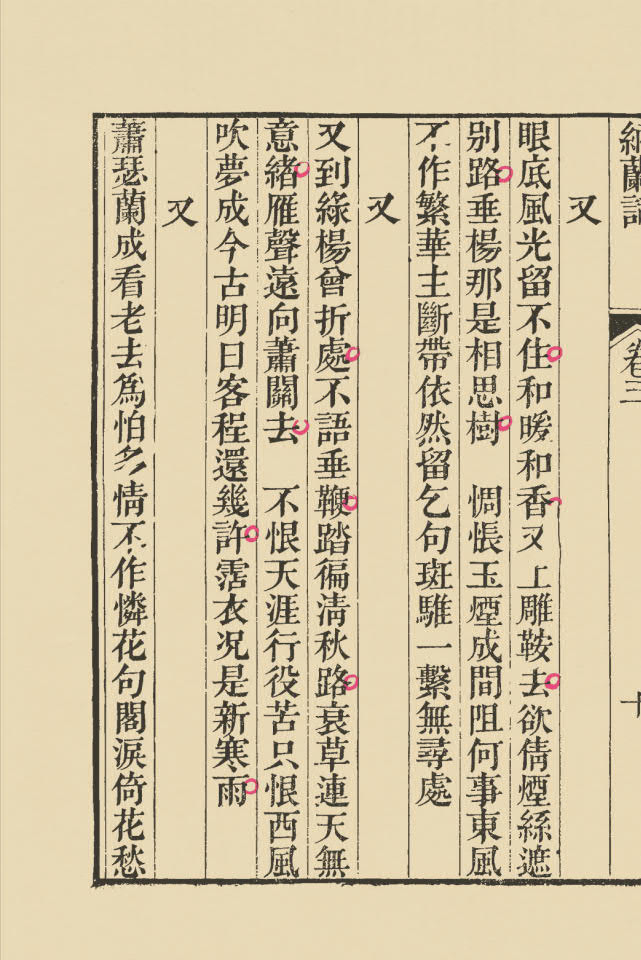 納蘭詞　卷三
又
眼底風光留不住和暖和香又上雕鞍去欲倩煙絲遮
别路垂楊那是相思樹　惆悵玉煙成間阻何事東風
不作繁華主斷帶依然留乞句斑騅一繫無尋處
又
又到綠楊曾折處不語垂鞭踏徧清秋路衰草連天無
意緒雁聲遠向蕭關去　不恨天涯行役苦只恨西風
吹夢成今古明日客程還幾許霑衣况是新寒雨
又
蕭瑟蘭成看老去爲怕多情不作憐花句閣淚倚花愁